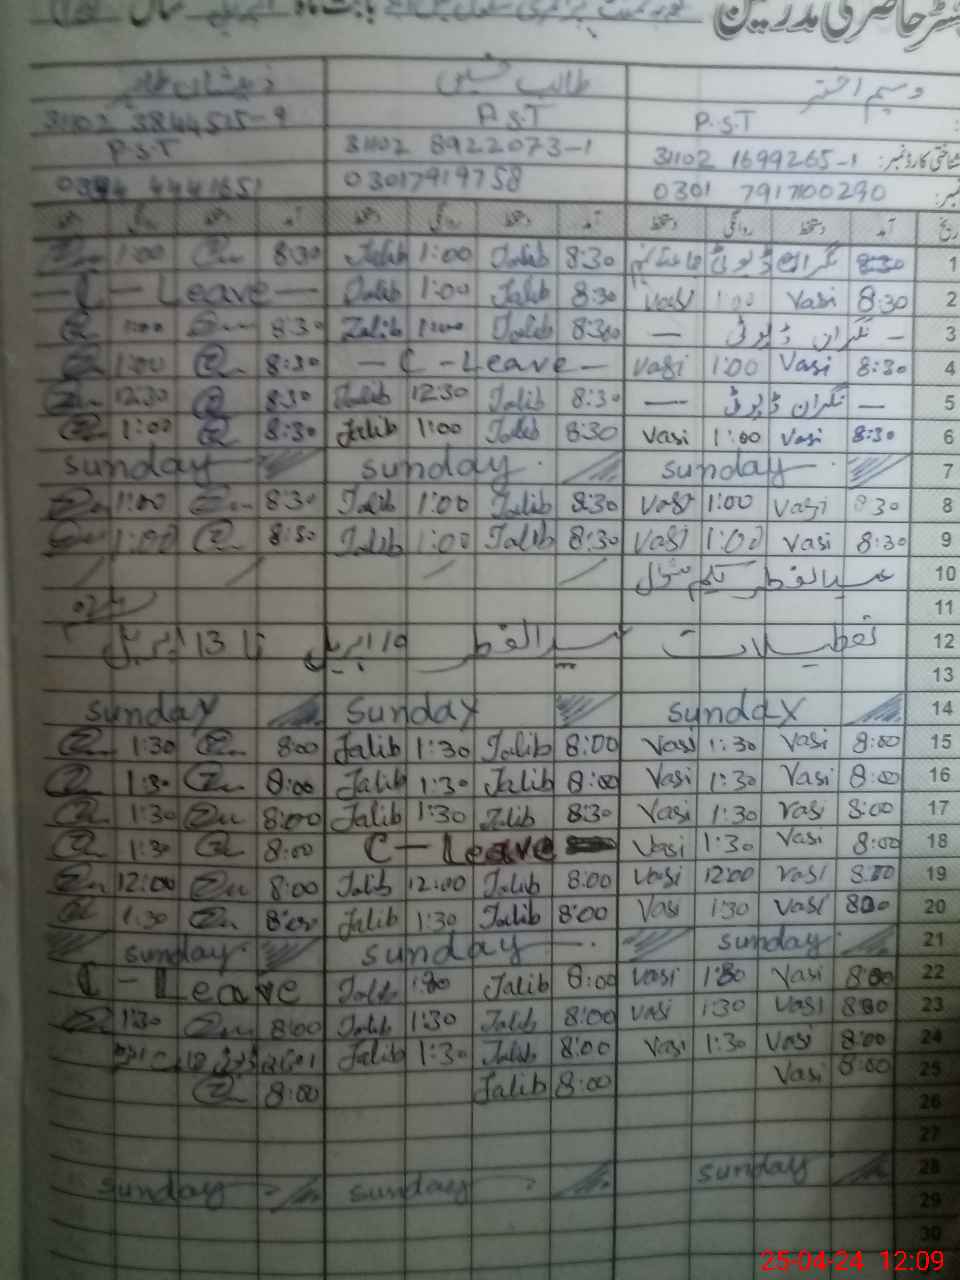 رجسٹر حاضری مدرسین بابت ماہ اپریل سال
وسیم اختر طالب حسین ذیشان طاہر
P.S.T P.S.T 31102 3844515-9
شناختی کارڈ نمبر: 31102 1699265-1 31102 8922073-1 P.S.T
نمبر: 0301 7917100290 03017919758 4441651
تاریخ آمد دستخط روانگی دستخط آمد دستخط روانگی دستخط آمد دستخط روانگی دستخط
1 8:30 نگران ڈیوٹی 8:30 Talib 1:00 Talib 8:30 1:00
2 8:30 Vasi 1:00 Vasi 8:30 Talib 1:00 Talib C-Leave
3 نگران ڈیوٹی 8:30 Talib 1:00 Talib 8:30 1:00
4 8:30 Vasi 1:00 Vasi C-Leave 8:30 1:00
5 نگران ڈیوٹی 8:30 Talib 12:30 Talib 8:30 12:30
6 8:30 Vasi 1:00 Vasi 8:30 Talib 1:00 Talib 8:30 1:00
7 sunday sunday sunday
8 8:30 Vasi 1:00 Vasi 8:30 Talib 1:00 Talib 8:30 1:00
9 8:30 Vasi 1:00 Vasi 8:30 Talib 1:00 Talib 8:30 1:00
10 عیدالفطر یکم شوال
11
12 تعطیلات عیدالفطر 10 اپریل تا 13 اپریل
13
14 sunday sunday sunday
15 8:00 Vasi 1:30 Vasi 8:00 Talib 1:30 Talib 8:00 1:30
16 8:00 Vasi 1:30 Vasi 8:00 Talib 1:30 Talib 8:00 1:30
17 8:00 Vasi 1:30 Vasi 8:30 Talib 1:30 Talib 8:00 1:30
18 8:00 Vasi 1:30 Vasi C-Leave 8:00 1:30
19 8:00 Vasi 12:00 Vasi 8:00 Talib 12:00 Talib 8:00 12:00
20 8:00 Vasi 1:30 Vasi 8:00 Talib 1:30 Talib 8:00 1:30
21 sunday sunday sunday
22 8:00 Vasi 1:30 Vasi 8:00 Talib 1:30 Talib C-Leave
23 8:00 Vasi 1:30 Vasi 8:00 Talib 1:30 Talib 8:00 1:30
24 8:00 Vasi 1:30 Vasi 8:00 Talib 1:30 Talib
25 8:00 Vasi 8:00 Talib 8:00
26
27
28 sunday sunday sunday
29
30
25-04-24 12:09